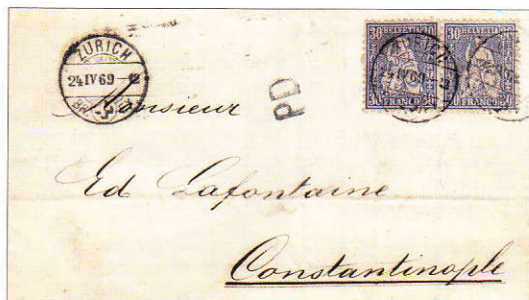 ZÜRICH
24 IV 69 - 12
PD
30 HELVETIA 30
30 FRANCO 30
30 HELVETIA 30
30 FRANCO 30
24 IV 69 - 12
Monsieur
Ed Lafontaine
Constantinople